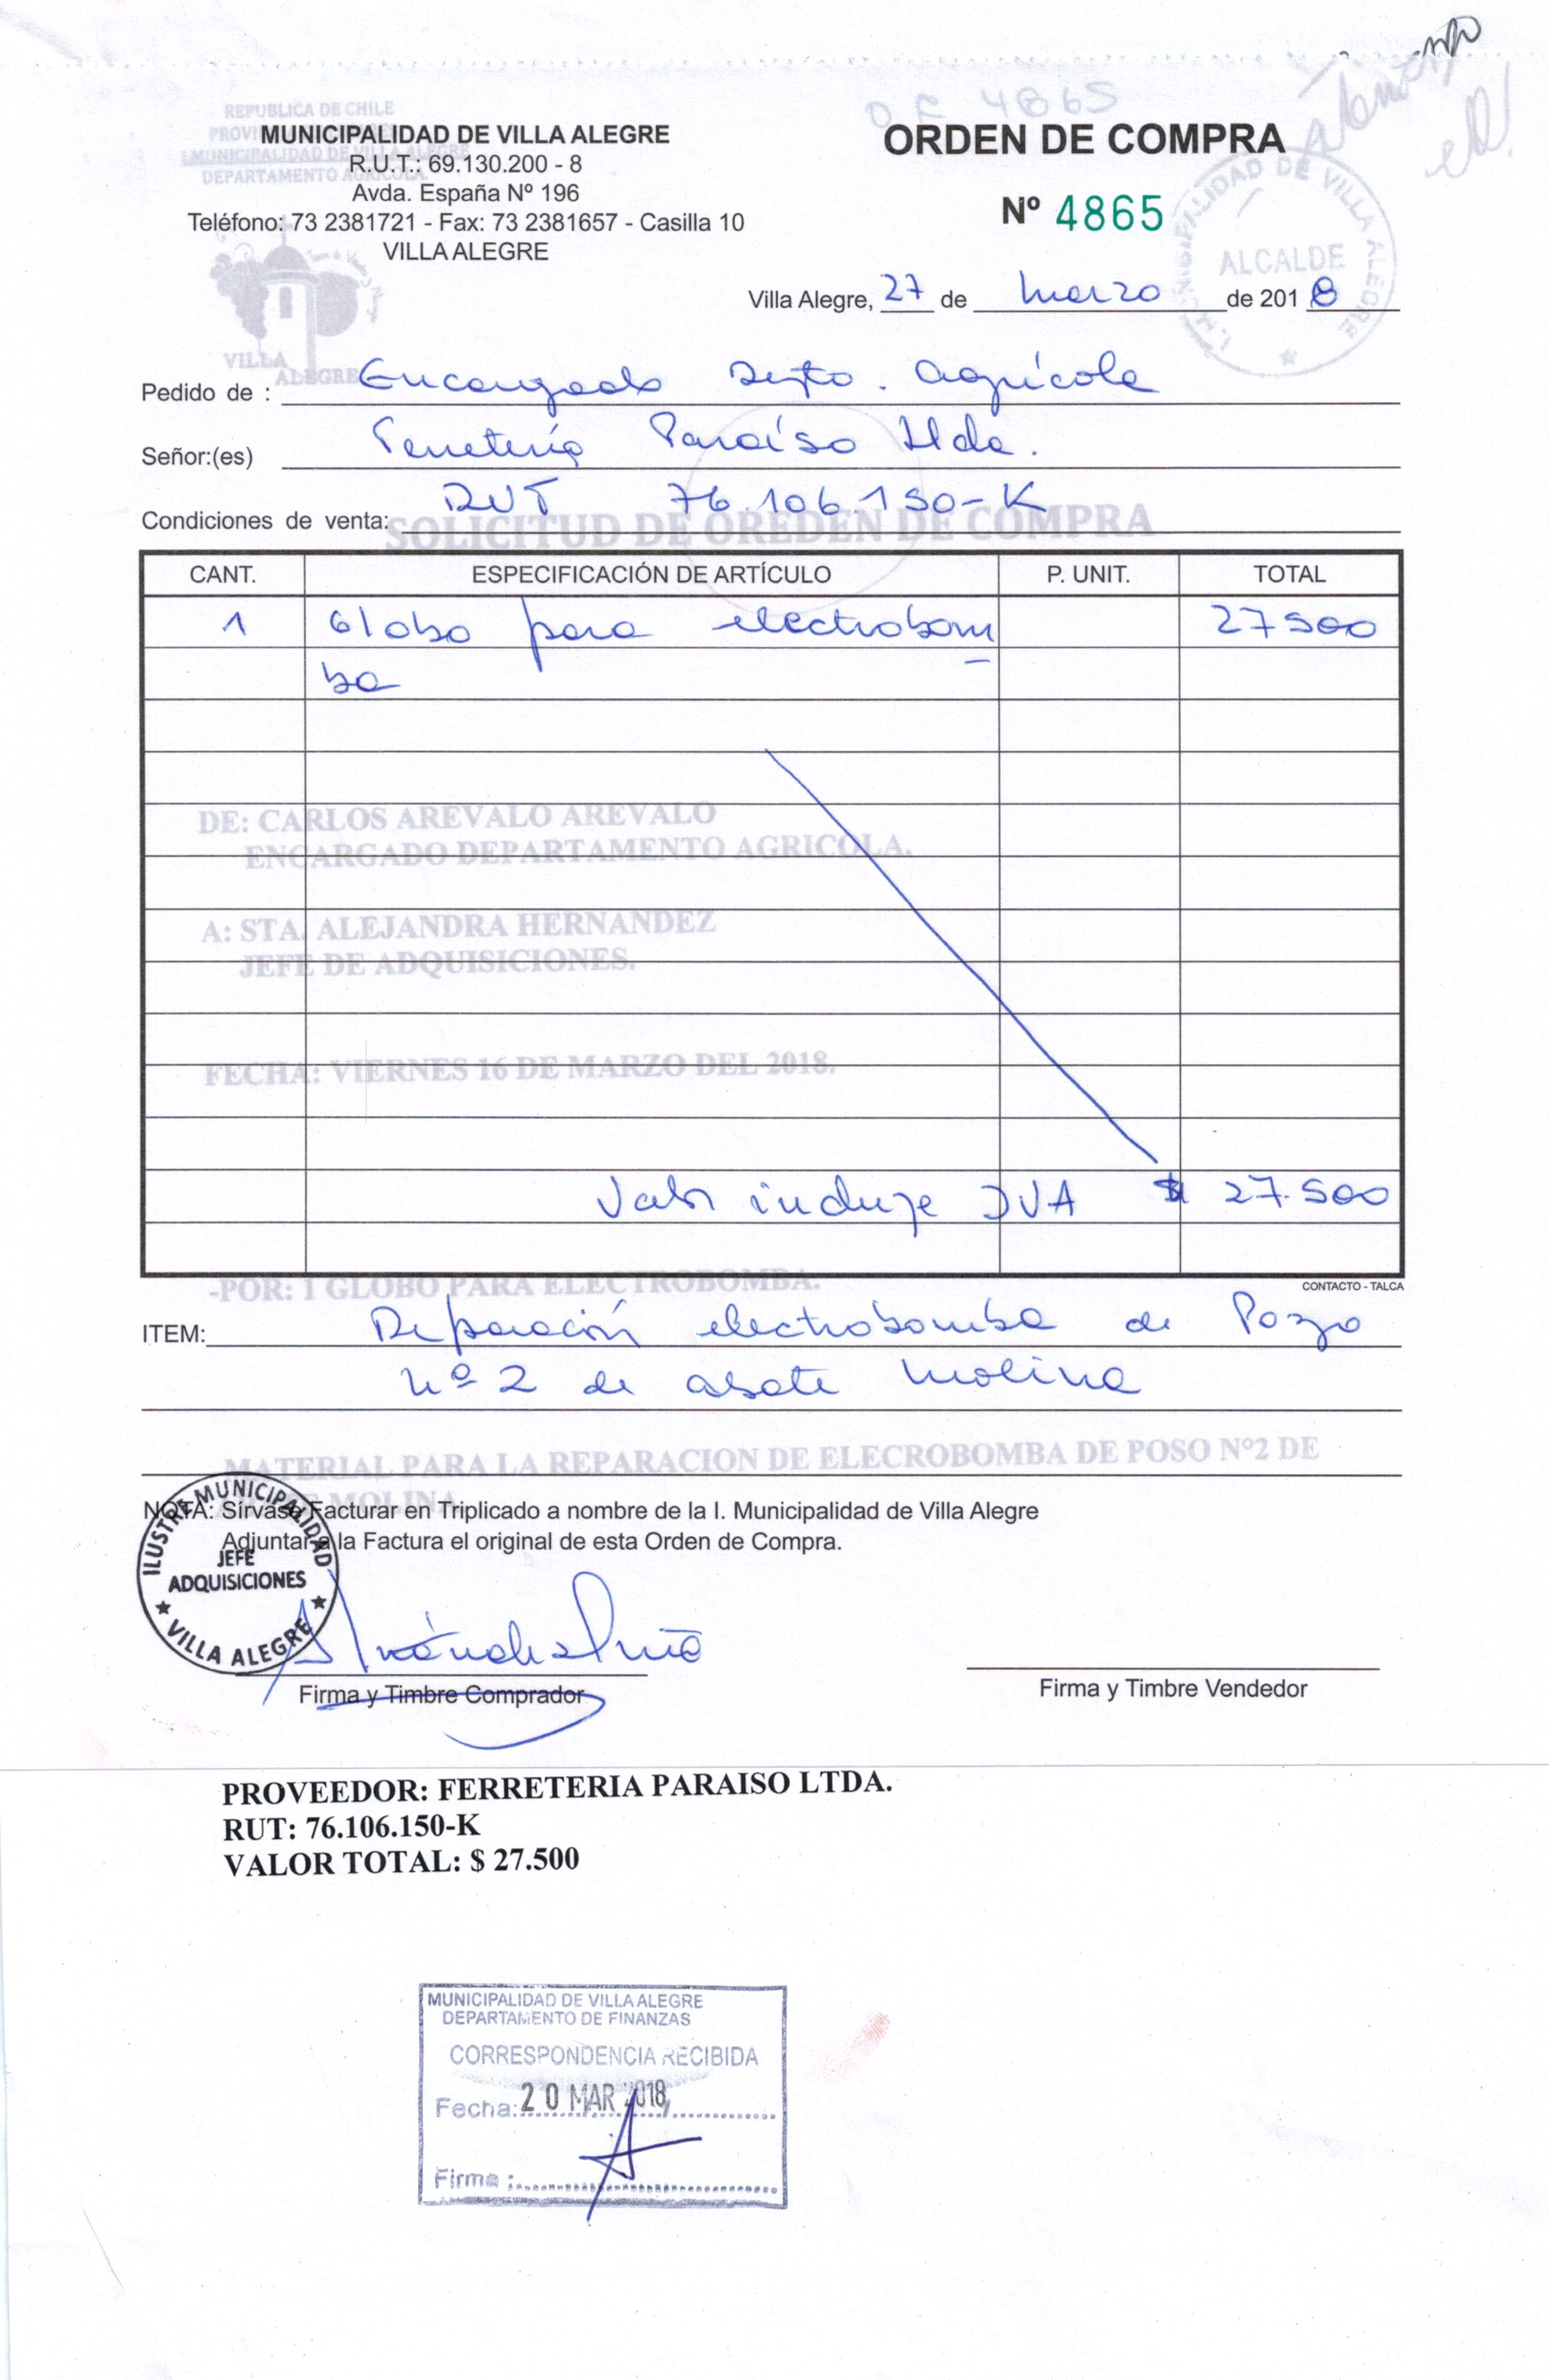 O.C 4865
REPUBLICA DE CHILE
MUNICIPALIDAD DE VILLA ALEGRE
I.MUNICIPALIDAD DE VILLA ALEGRE
DEPARTAMENTO AGRICOLA.
R.U.T.: 69.130.200 - 8
Avda. España Nº 196
Teléfono: 73 2381721 - Fax: 73 2381657 - Casilla 10
VILLA ALEGRE
VILLA
ALEGRE
ORDEN DE COMPRA
Nº 4865
I. MUNICIPALIDAD DE VILLA ALEGRE
ALCALDE
Villa Alegre, 27 de Marzo de 2018
Pedido de : Encargado Depto. Agrícola
Señor:(es) Ferretería Paraíso Ltda.
Condiciones de venta: RUT 76.106.150-K
SOLICITUD DE OREDEN DE COMPRA
CANT. ESPECIFICACIÓN DE ARTÍCULO P. UNIT. TOTAL
1 Globo para electrobom 27500
ba
DE: CARLOS AREVALO AREVALO
ENCARGADO DEPARTAMENTO AGRICOLA.
A: STA. ALEJANDRA HERNANDEZ
JEFE DE ADQUISICIONES.
FECHA: VIERNES 16 DE MARZO DEL 2018.
Valor incluye IVA $ 27.500
CONTACTO - TALCA
-POR: 1 GLOBO PARA ELECTROBOMBA.
ITEM: Reparación electrobomba de Pozo
Nº 2 de abate Molina
MATERIAL PARA LA REPARACION DE ELECROBOMBA DE POSO Nº2 DE
MOLINA
NOTA: Sírvase Facturar en Triplicado a nombre de la I. Municipalidad de Villa Alegre
Adjuntar a la Factura el original de esta Orden de Compra.
ILUSTRE MUNICIPALIDAD
JEFE
ADQUISICIONES
VILLA ALEGRE
Firma y Timbre Comprador
Firma y Timbre Vendedor
PROVEEDOR: FERRETERIA PARAISO LTDA.
RUT: 76.106.150-K
VALOR TOTAL: $ 27.500
MUNICIPALIDAD DE VILLA ALEGRE
DEPARTAMENTO DE FINANZAS
CORRESPONDENCIA RECIBIDA
Fecha: 20 MAR 2018
Firma :